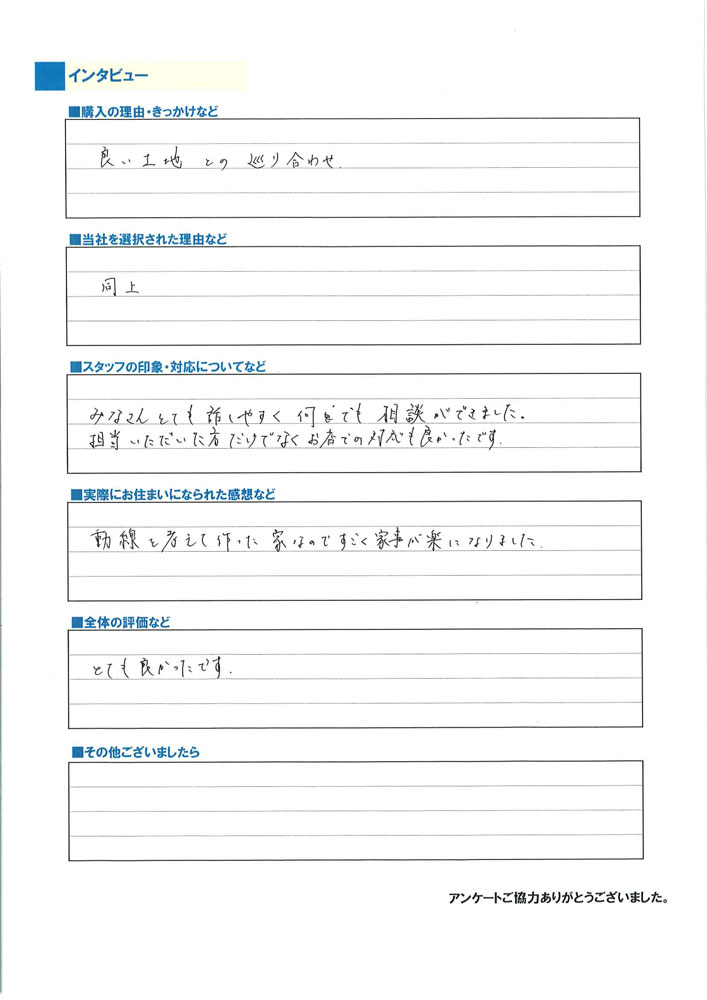 インタビュー
■購入の理由・きっかけなど
良い土地との巡り合わせ.
■当社を選択された理由など
同上
■スタッフの印象・対応についてなど
みなさんとても話しやすく何でも相談ができました。
担当いただいた方だけでなくお店での対応も良かったです.
■実際にお住まいになられた感想など
動線を考えて作った家なのですごく家事が楽になりました.
■全体の評価など
とても良かったです.
■その他ございましたら
アンケートご協力ありがとうございました。